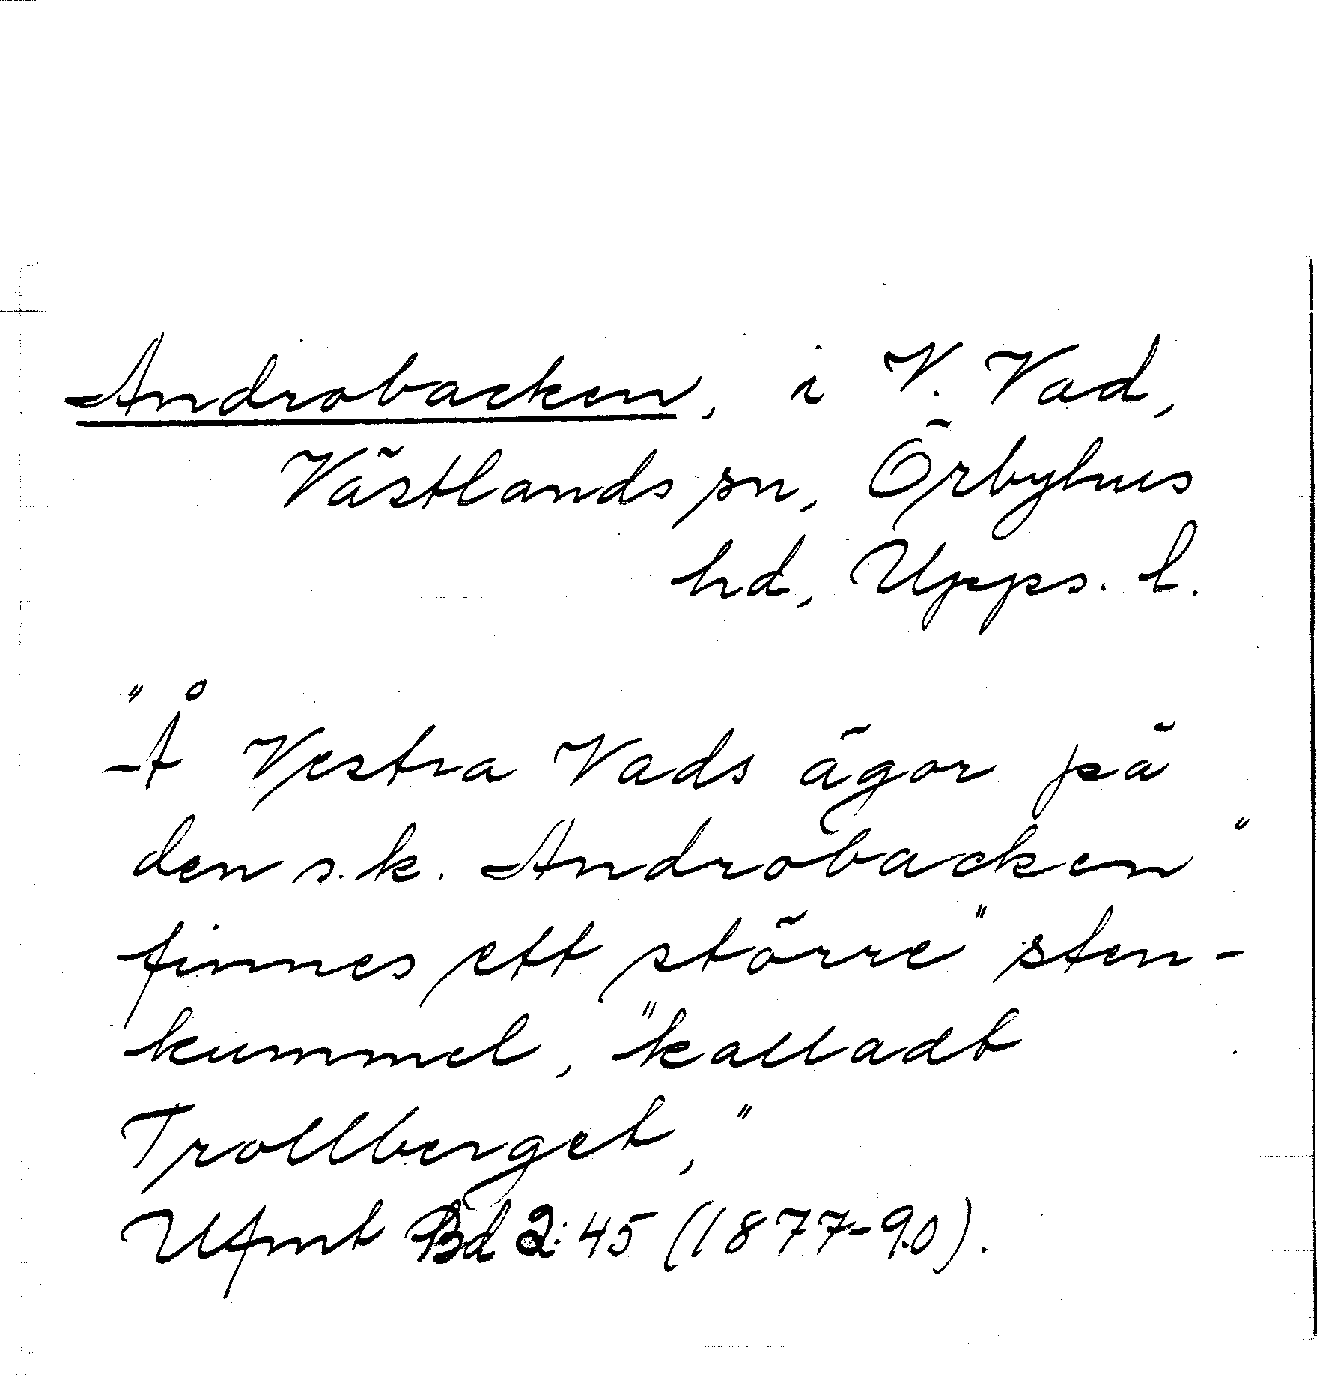 Androbacken, i V. Vad,
Västlands sn, Örbyhus
hd, Upps. l.
"Å Vestra Vads ägor på
den s.k. Androbacken"
finnes ett större "sten-
kummel, "kalladt
Trollberget,"
Ufmt Bd 2:45 (1877-90).